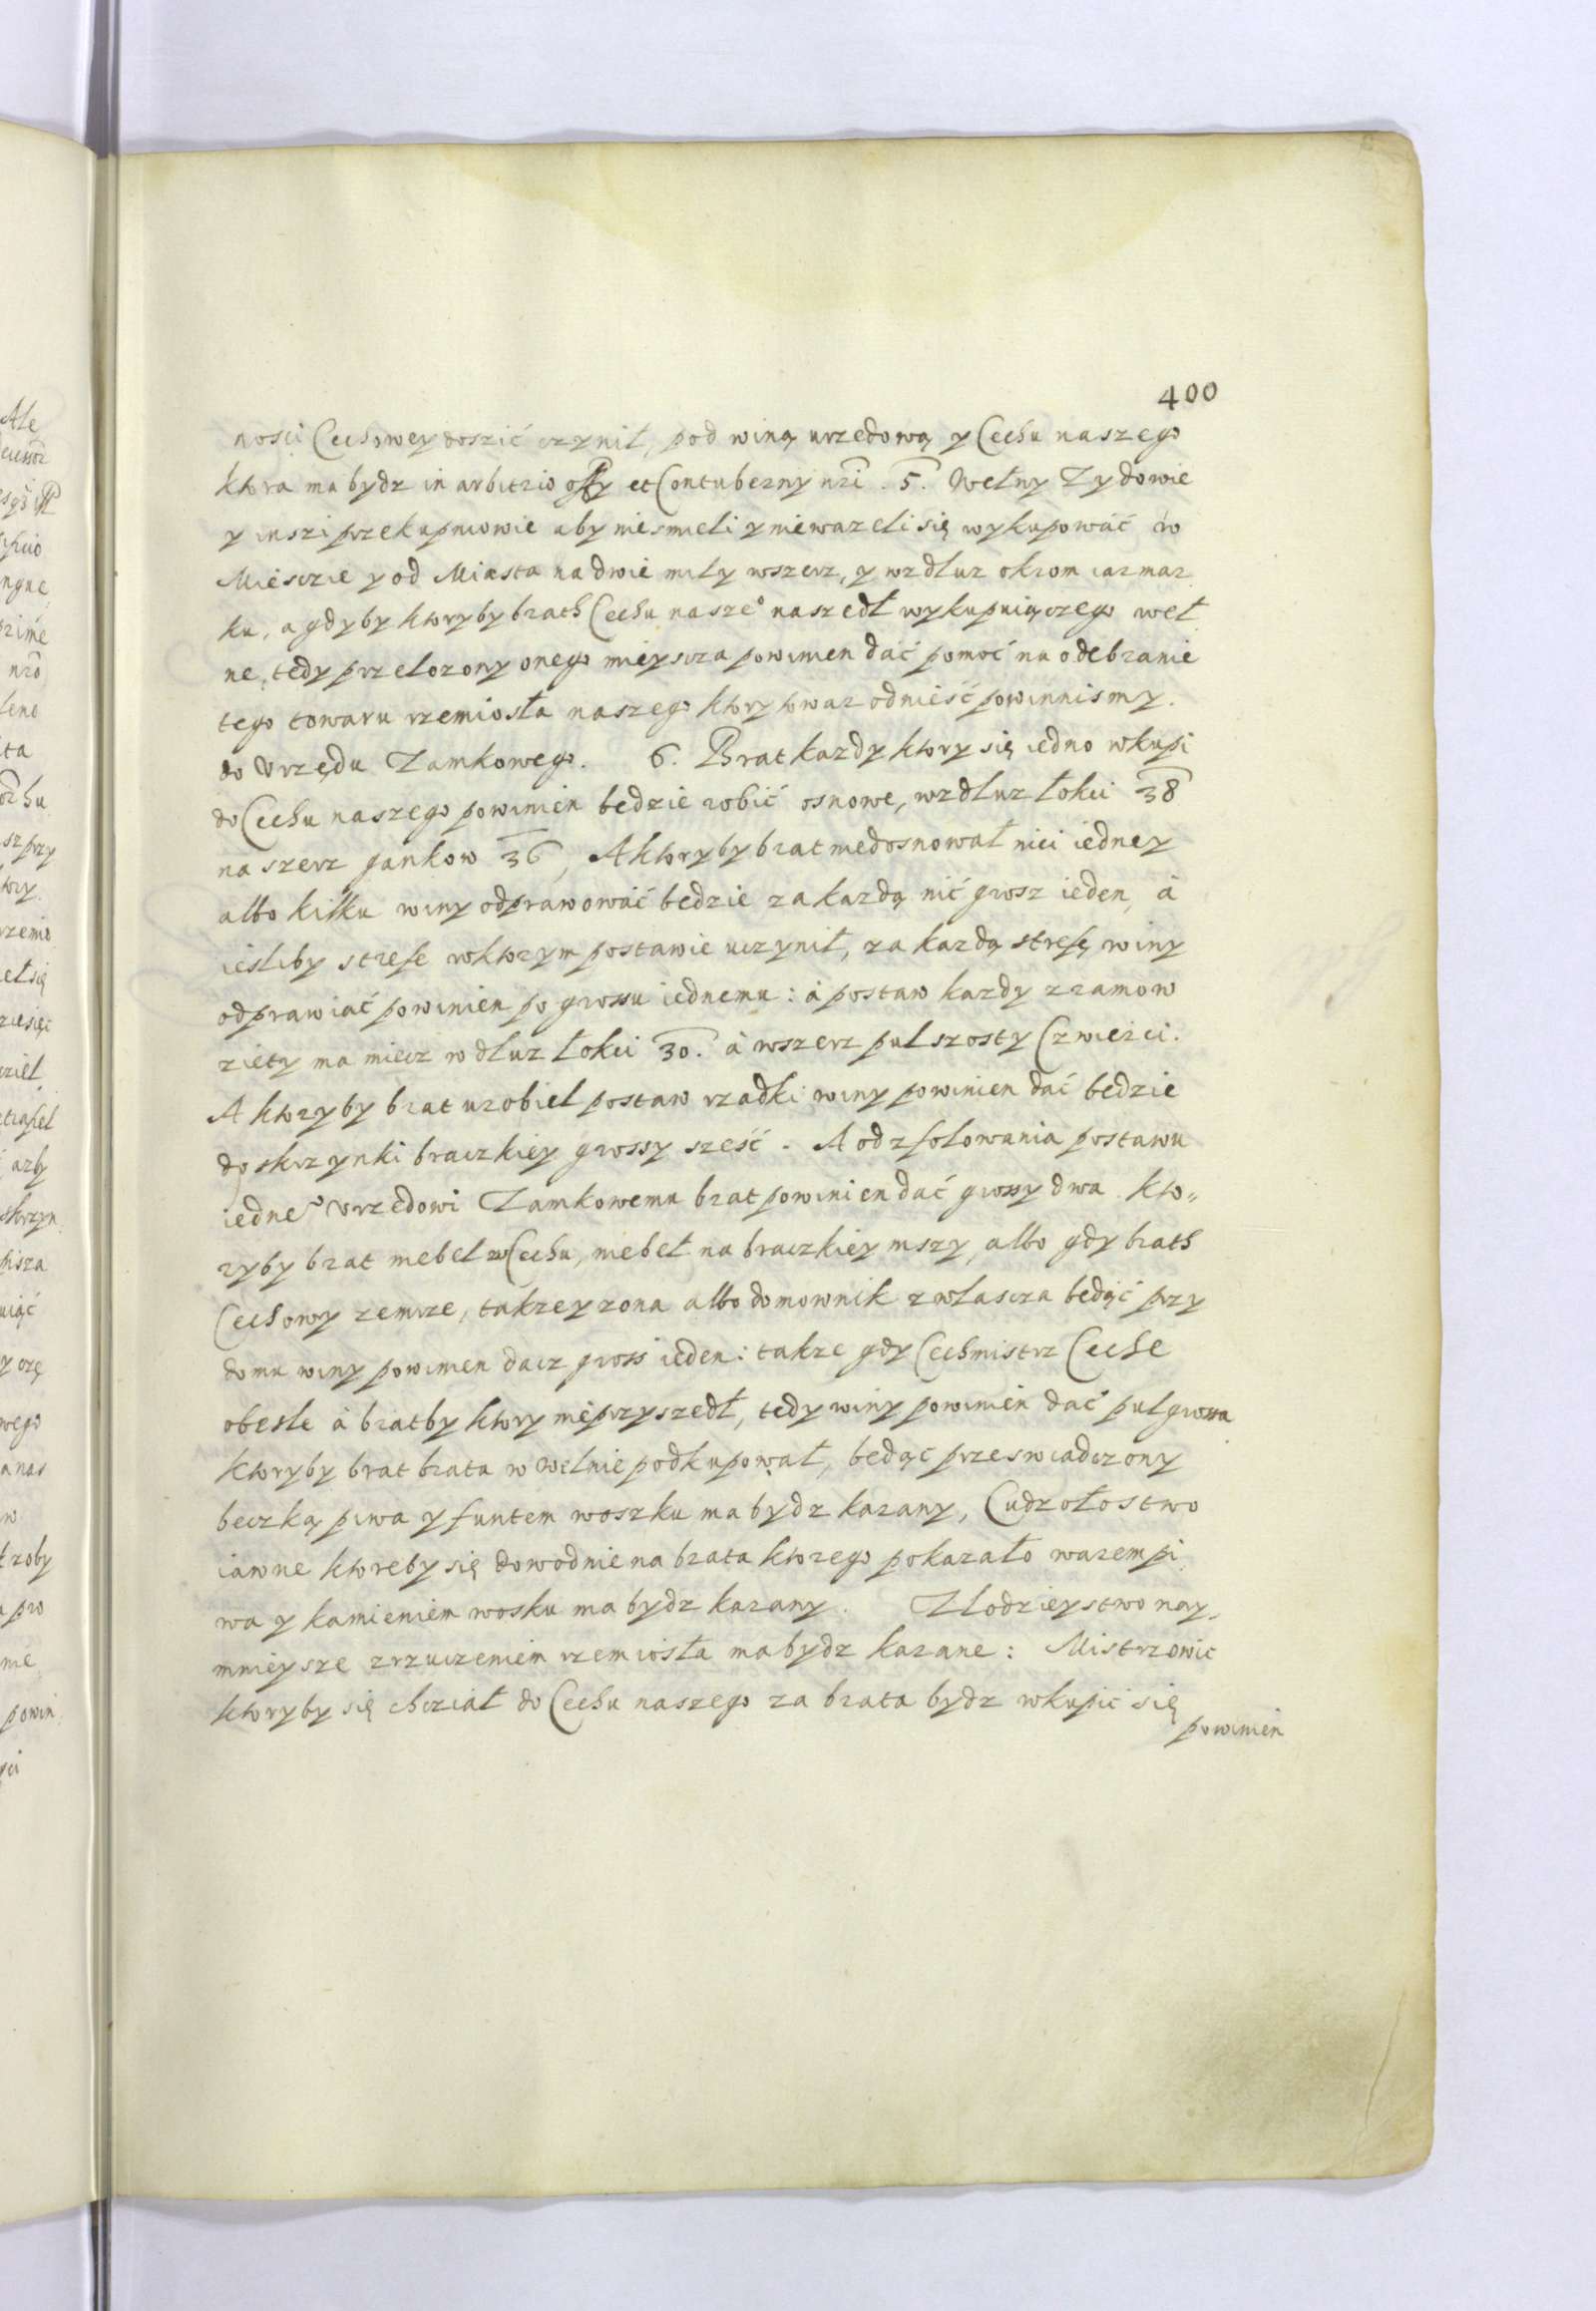 400
nosci Cechowey doszić czynił, pod winą urzedową y Cechu naszego
ktora ma bydz in arbitrio offy et Contuberny nri. 5. Wełny Zydowie
y inszi przekupniowie aby niesmieli y niewazeli się wykupować w
Miesczie y od Miasta na dwie mily wszerz, y wzdłuz okrom iarmar
ku, a gdyby ktoryby brath Cechu nasze° naszedł wykupuiączego weł
ne, tedy przelozony onego mieyscza powinien dać pomoć na odebranie
tego towaru rzemiosła naszego ktory towar odnieść powinnismy.
do Vrzędu Zamkowego. 6. Brat kazdy ktory się iedno wkupi
do Cechu naszego powinien bedzie robić osnowe, wzdłuz łokci 38
na szerz gankow 36, A ktoryby brat niedosnował nici iedney
albo kilku winy odprawować bedzie za kazdą nić grosz ieden, à
iesliby strefe w ktorym postawie uczynił, za kazdą strefę winy
odprawiać powinien po grossu iednemu: à postaw kazdy z ramow
ziety ma miecz w dłuz łokci 30. à wszerz puł szosty Czwierci.
A ktoryby brat urobieł postaw rzadki winy powinien dać bedzie
do skrzynki braczkiey grossy sześć. A od zfolowania postawu
iedne° Vrzedowi Zamkowemu brat powinien dać grossy dwa. Kto„
ryby brat niebeł w Cechu, niebeł na braczkiey mszy, albo gdy brath
Cechowy zemrze, takze y zona albo domownik zwłascza bedąć przy
domu winy powinien dacz gross ieden: takze gdy Cechmistrz Ceche
obesle à bratby ktory nieprzyszedł, tedy winy powinien dać puł grossa
Ktoryby brat brata w wełnie podkupował, bedąc przeswiadczony
beczką piwa y funtem woszku ma bydz karany, Cudzołostwo
iawne ktoreby się dowodnie na brata ktorego pokazało warem pi
wa y kamieniem wosku ma bydz karany. Zlodzieystwo nay„
mnieysze zrzuczeniem rzemiosła ma bydz karane: Mistrzowic
ktoryby się chcział do Cechu naszego za brata bydz wkupić się
powinien